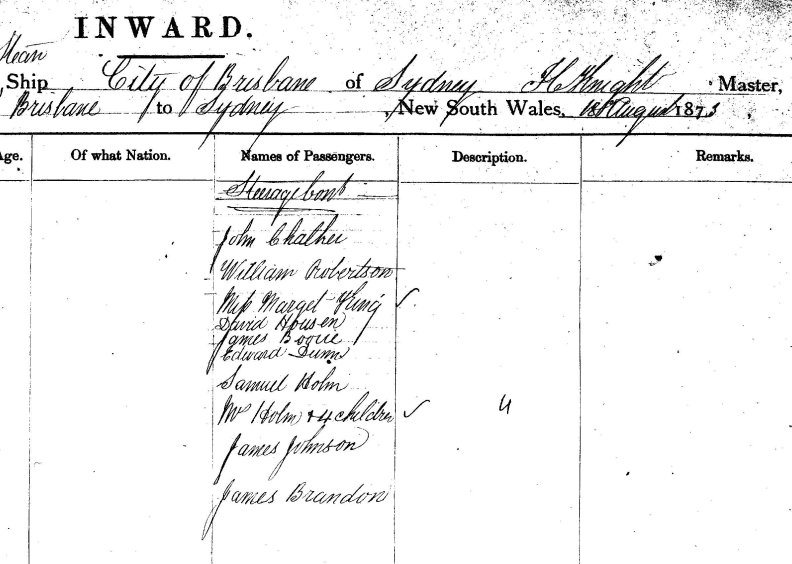 INWARD.
Steam
Ship City of Brisbane of Sydney H Knight Master,
Brisbane to Sydney, New South Wales, 18 August 1873
Age. Of what Nation. Names of Passengers. Description. Remarks.
Steerage cont
John
William Robertson
Miss Marget King ✓
David Housen
James Bogue
Edward Dunn
Samuel Holm
Mrs Holm & 4 children ✓ 4
James Johnson
James Brandon